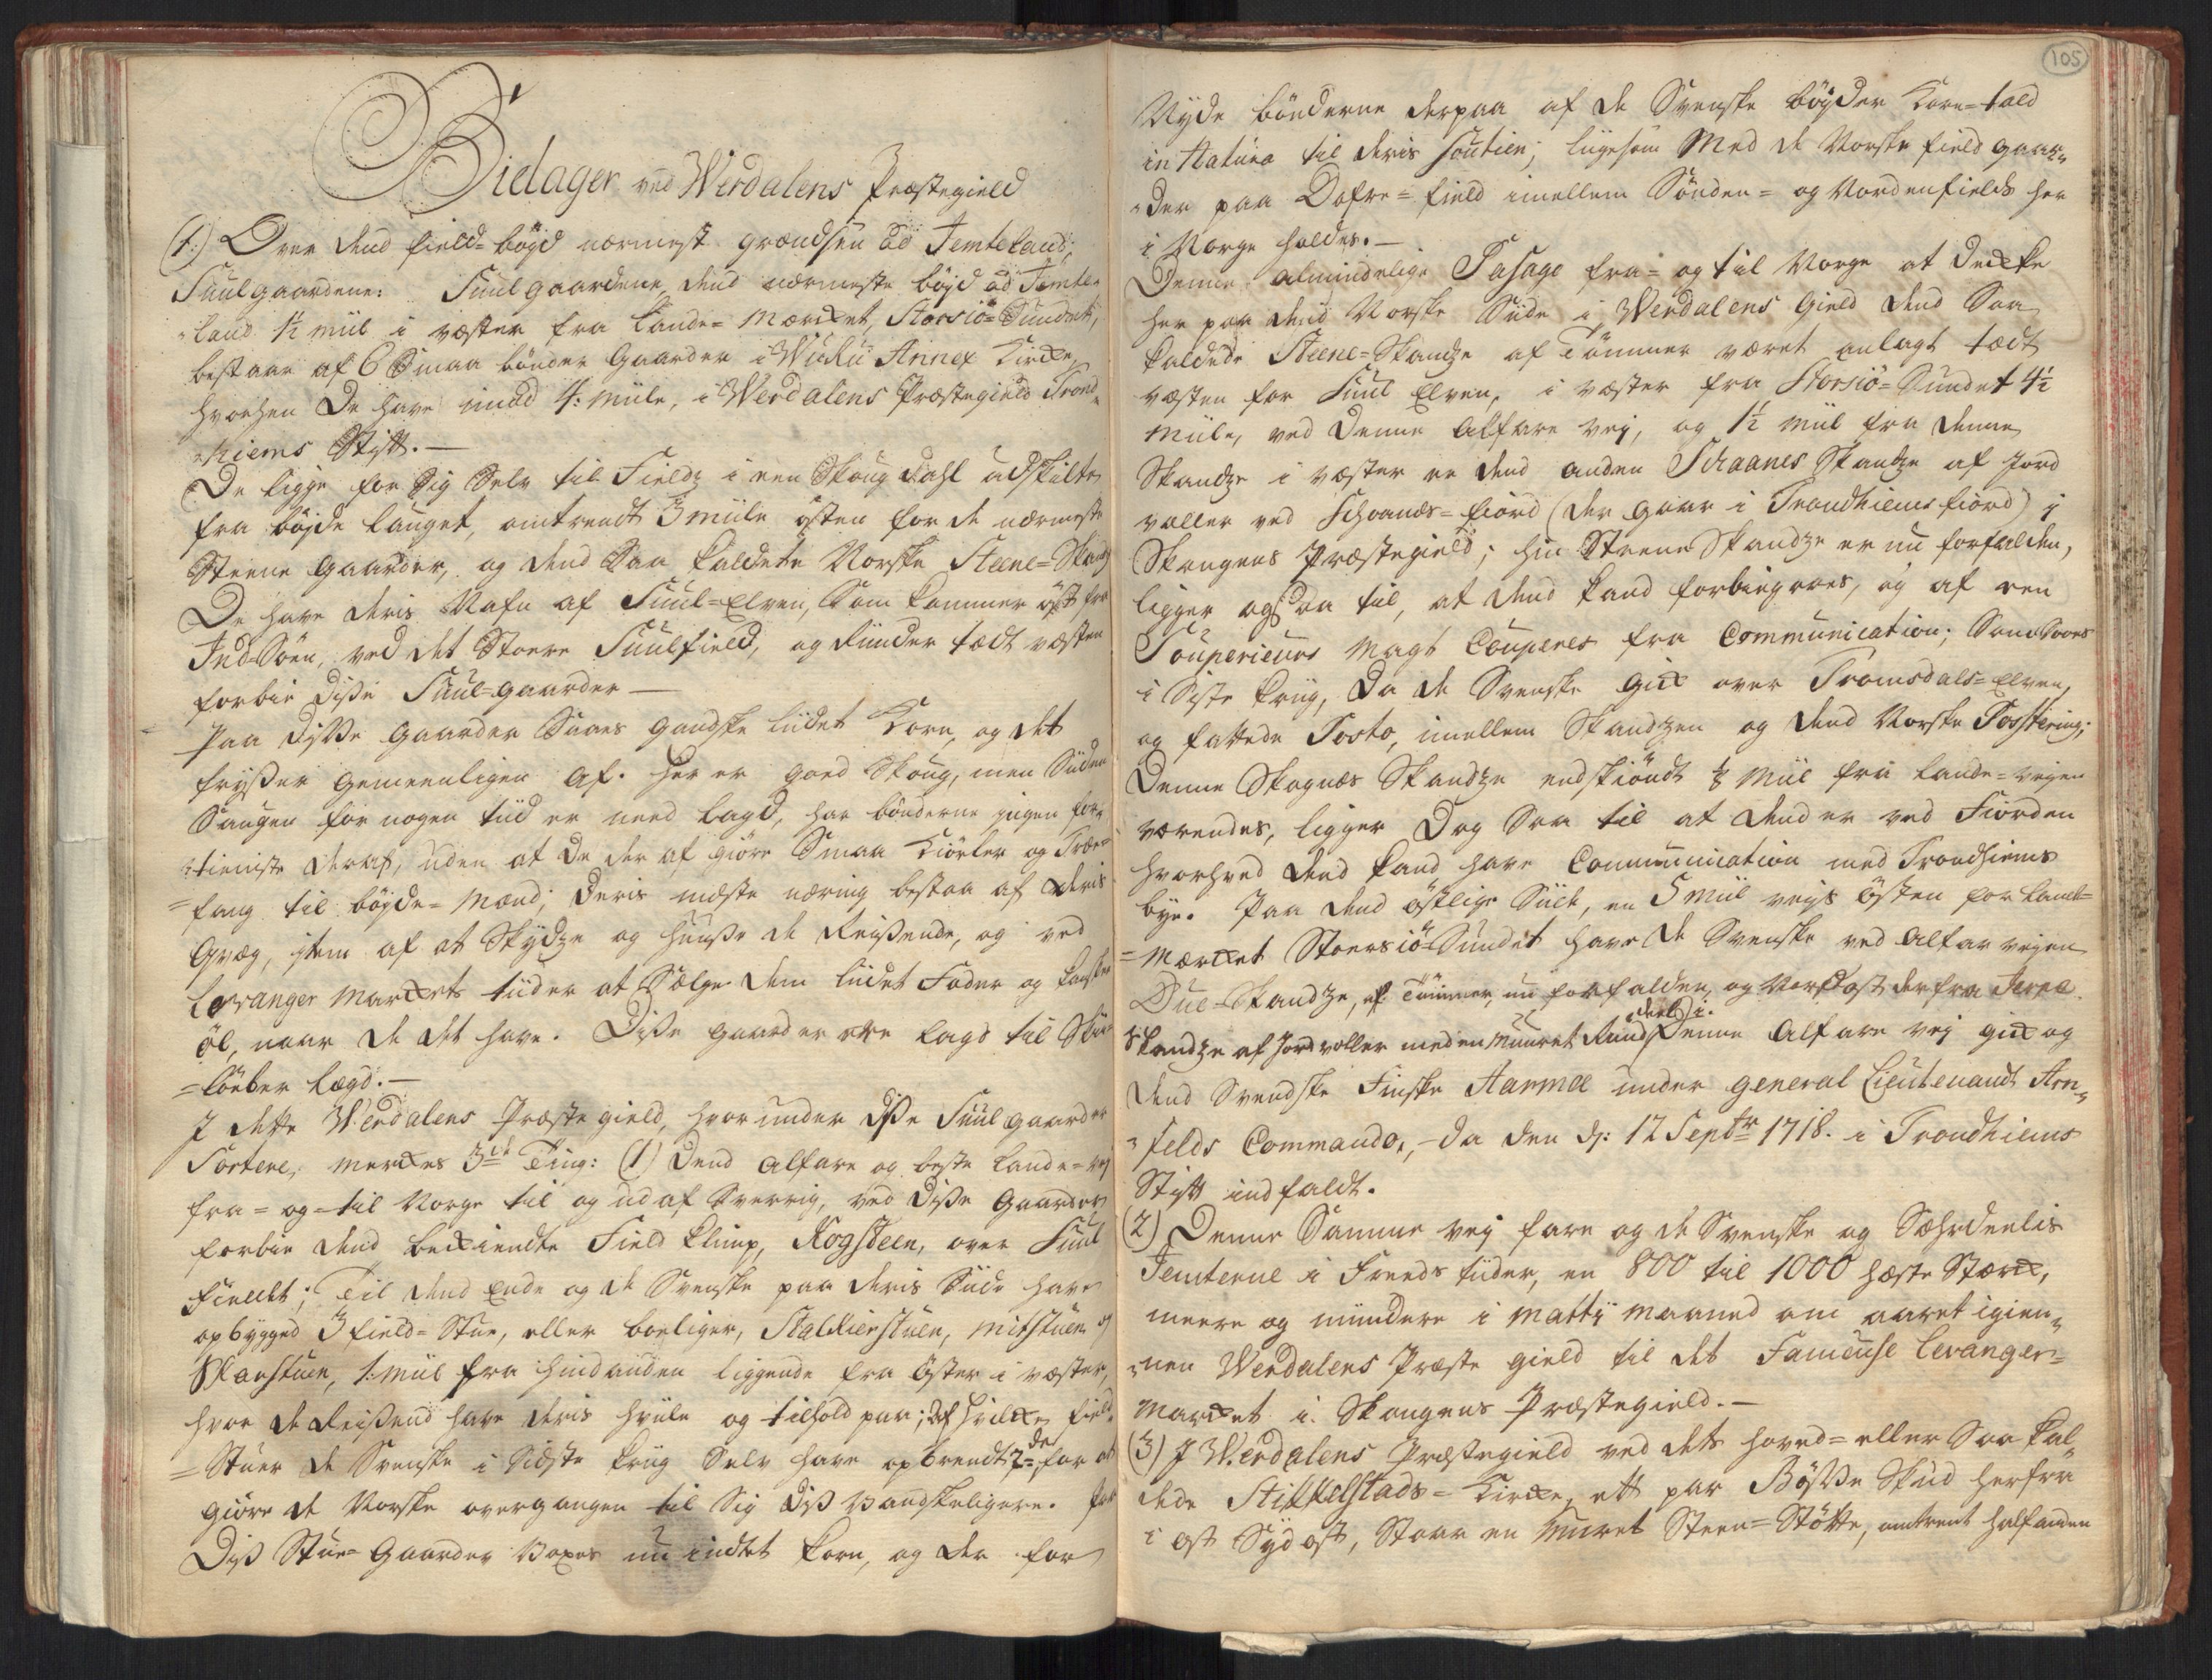 Bielager ved Werdalens Præstegield
(1:) Over dend field-bøyd nærmest grændsen ad Jemteland;
Suulgaardene: Suulgaardene, dend nærmeste bøyd ad Jemte-
-land 1½ miil i væster fra Lande-Mærcket, Storsiö-Sundet,
bestaar af 6 Smaa bönder Gaarder i Wuku Annex Kircke,
hvorhen De have imod 4: miile, i Werdalens Præstegield Trond-
-hiems Stift.—
De ligge for Sig Selv til Fieldz i een Skoug Dahl adskilte
fra bøjde lauget, omtrendt 3 miile østen for de nærmeste
Steene gaarder, og dend Saa kaldede Norske Steene-Skandz
De have deris Nafn af Suul-Elven, Som kommer øst fra
Ind-Söen, ved det Stoere Suulfield, og Runder tædt vesten
forbie diße Suul-gaarder—
Paa diße gaarder Saaes gandske liidet Korn, og det
fryßer gemeenligen af. her er goed Skoug, men Siiden
Saugen for nogen tiid er need lagd, har bönderne ingen for-
-tieniste deraf, uden at de der af giöre Smaa Kiörler og Træe-
-fang til bøyde-Mænd; deris mæste næring bestaa af deris
Qvæg, item af at Skydze og huuße de Reißende, og ved
Levanger Marckets tiider at Sælge dem liidet Foder og kanske
öl, naar de det have. Diße gaarder ere lagd til Skie-
-löeber lægd.—
I dette Werdalens Præstegield, hvorunder diße Suul gaarder
Sortere, merckes 3de Ting: (1) Dend alfare og beste lande-vej
fra- og-til Norge til og ud af Sverrig, ved diße Gaarder
forbie dend beckiendte Field klimp, Kogsteen, over Suul
fieldet; Til dend Ende og de Svenske paa deris Siide have
opbygged 3 field-Stue, eller boeliger, Stalltierstuen, mitstuen og
Skanstuen, 1: miil fra hindanden liggende fra öster i væster,
hvor de Reißend have deris hviile og tilhold paa; af hvilcke field-
-Stuer de Svenske i Sidste krüg Selv have opbrendt 2de for at
giöre de Norske overgangen til Sig diß vandskeligere. Paa
Diß Stue-Gaarder voxer nu indtet korn, og der for
105
Nyde bönderne derpaa af de Svenske böyder Korn-told
in Natura til deris Soutien; liigesom Med de Norske field gaar-
-der paa Dofre-field imellem Sönden- og Nordenfields her
i Norge holdes.—
Denne almindelige Pasage fra- og til Norge at decke
her paa dend Norske Siide i Werdalens Gield dend Saa
kaldede Steene-Skandze af Tömmer været anlagt tædt
væsten for Suul Elven, i væster fra Storsiö-Sundet 4½
miile, ved denne alfare vej, og 1½ miil fra denne
Skandze i væster er dend anden Schaanes Skandze af Jord
voller ved Schoanæs-fiord (der gaar i Trondhiems fiord) i
Skougnes Præstegield; hin Steene Skandze er nu forfalden,
ligger ogsaa til, at dend kand forbiegaaes, og af een
Souperieurs Magt Couperes fra Communication; Som Saaes
i Siste krüg, da de Svenske gick over Tromsdals-Elven,
og fattede Posto, imellem Skandzen og dend Norske Postering;
Denne Skognæs Skandze endskiöndt ⅛ Miil fra lande-vejen
værendes, ligger dog Saa til at dend er ved Fiorden
hvorved dend kand have Communication med Trondhiems
bye. Paa dend östlige Siide, en 5 Miil vejs östen for land-
-Mærcket Stoersiö-Sundet have de Svenske ved alfar vejen
Due-Skandze, af Tömmer, nu forfalden, og Nordost derfra Jerpe
Skandze af Jord voller med en Muuret Rundeel i. Denne alfare vej gick og
dend Svendske Finske Aarmee under General Lieutenandt Arn-
-felds Commando,-da den d: 12 Septbr 1718. i Trondhiems
Stift indfaldt.
(2) Denne Samme vej fare og de Svenske og Særdeelis
Jemterne i Freeds tiider, en 800 til 1000 hæste Stærck,
meere og mindere i Martij maaned om aaret igien-
-nem Werdalens Præste gield til det Fameuse Levanger-
Marcket i Skougnes Præstegield.—
(3) I Werdalens Præstegield ved dets hoved- eller Saa kal-
dede Stikkelstads-Kircke, ett par Bösse Skud herfra
i ost Sydost, Staar en Muret Steen-Stötte, omtrent halfanden